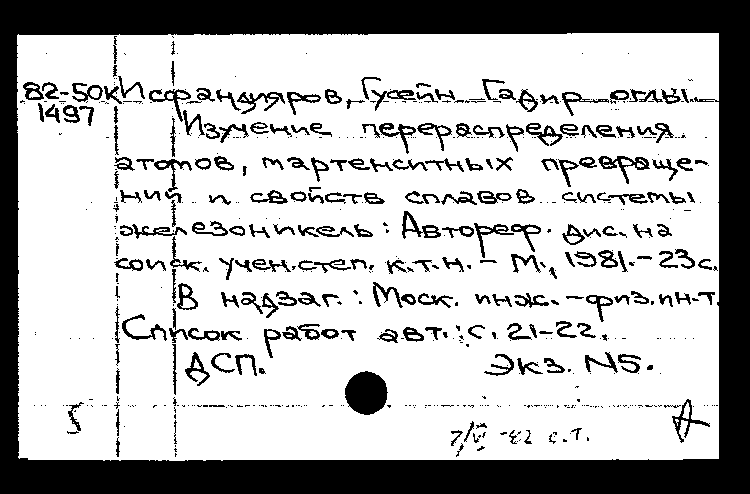 82-50к Исфандияров, Гусейн Гадир оглы.
1497
Изучение перераспределения
атомов, мартенситных превраще-
ний и свойств сплавов системы
железоникель: Автореф. дис. на
соиск. учен. степ. к.т.н. - М., 1981. - 23с.
В надзаг.: Моск. инж.-физ. ин-т.
Список работ авт.: с. 21-22.
ДСП. Экз. N5.
5
7/VI -82 с.т.